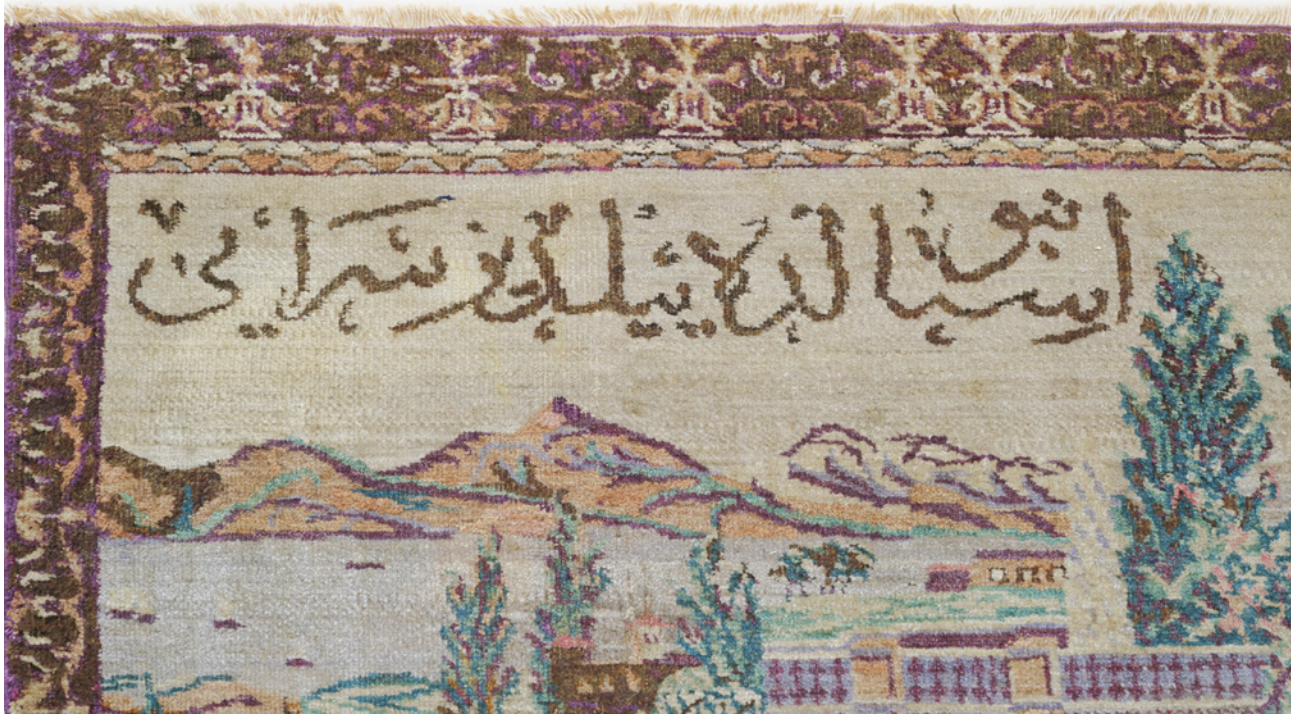 استانبولده ييلديز سرايى